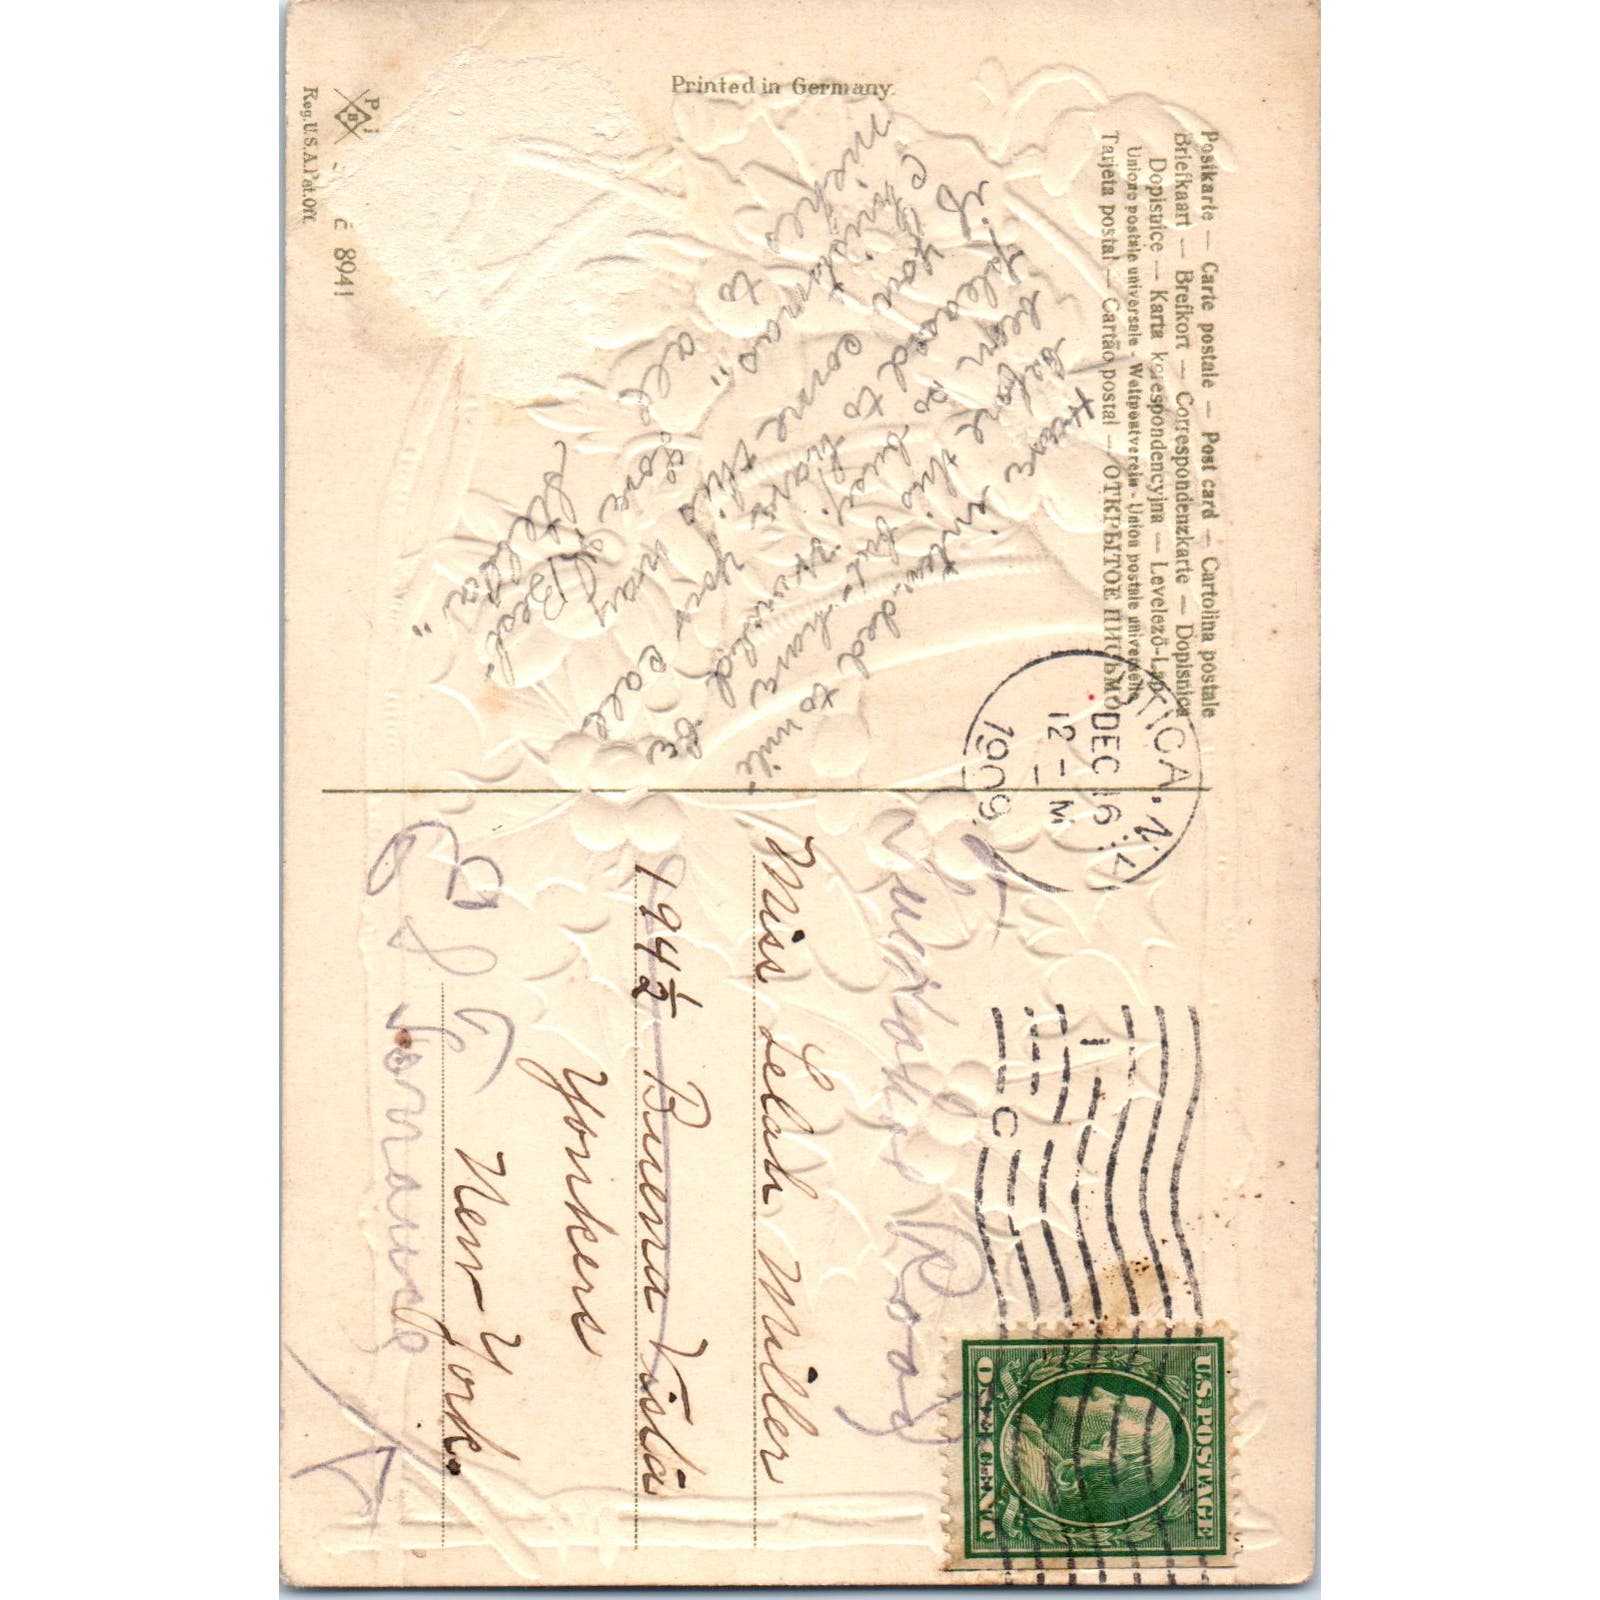 Postkarte — Carte postale — Post card — Cartolina postale
Briefkaart — Brefkort — Correspondenzkarte — Dopisnica
Dopisnice — Karta korespondencyjna — Levelező-Lap
Unione postale universale - Weltpostverein - Union postale universelle
Tarjeta postal — Cartão postal — ОТКРЫТОЕ ПИСЬМО
Printed in Germany.
Have intended to
before this but - have
been so busy. would be
pleased to have you call
if you come this way
Christmas" love
to all
Bert
Stella"
UTICA, N.Y.
DEC 16
12 - M
1909
U.S. POSTAGE
ONE CENT
Road
Miss Lelah Miller
194½ Buena Vista
Yonkers
New York.
8941
Reg. U.S.A. Pat. Off.